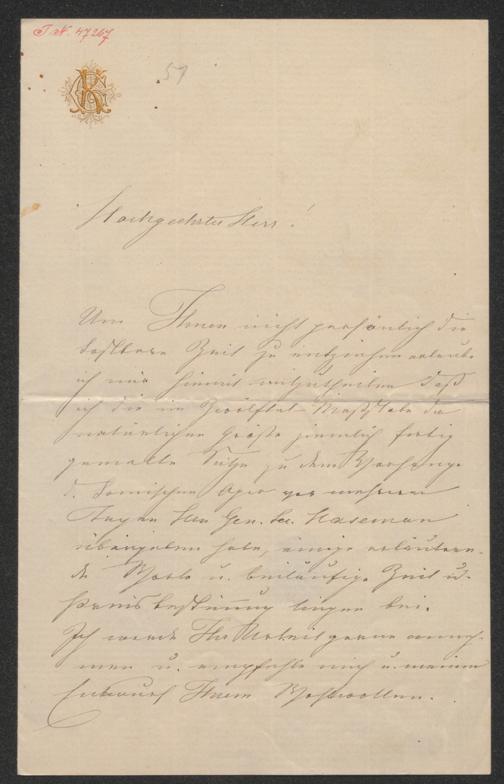 I. N. 47267
51
Hochgeehrter Herr!
Um Ihnen nicht persönlich die
kostbare Zeit zu entziehen erlaube
ich mir hiemit mitzutheilen daß
ich die im Zwölftel-Maßstabe der
natürlichen Größe ziemlich fertig
gemalte Skitze zu dem Vorhange
d. komischen Oper vor mehreren
Tagen Herrn Gen. Sec. Haseman
übergeben habe, einige erläutern-
de Worte u. beiläufige Zeit u.
Preisbestimmung liegen bei.
Ich werde Ihr Urtheil gerne
men u. empfehle mich u. meinen
Entwurf Ihrem Wohlwollen.